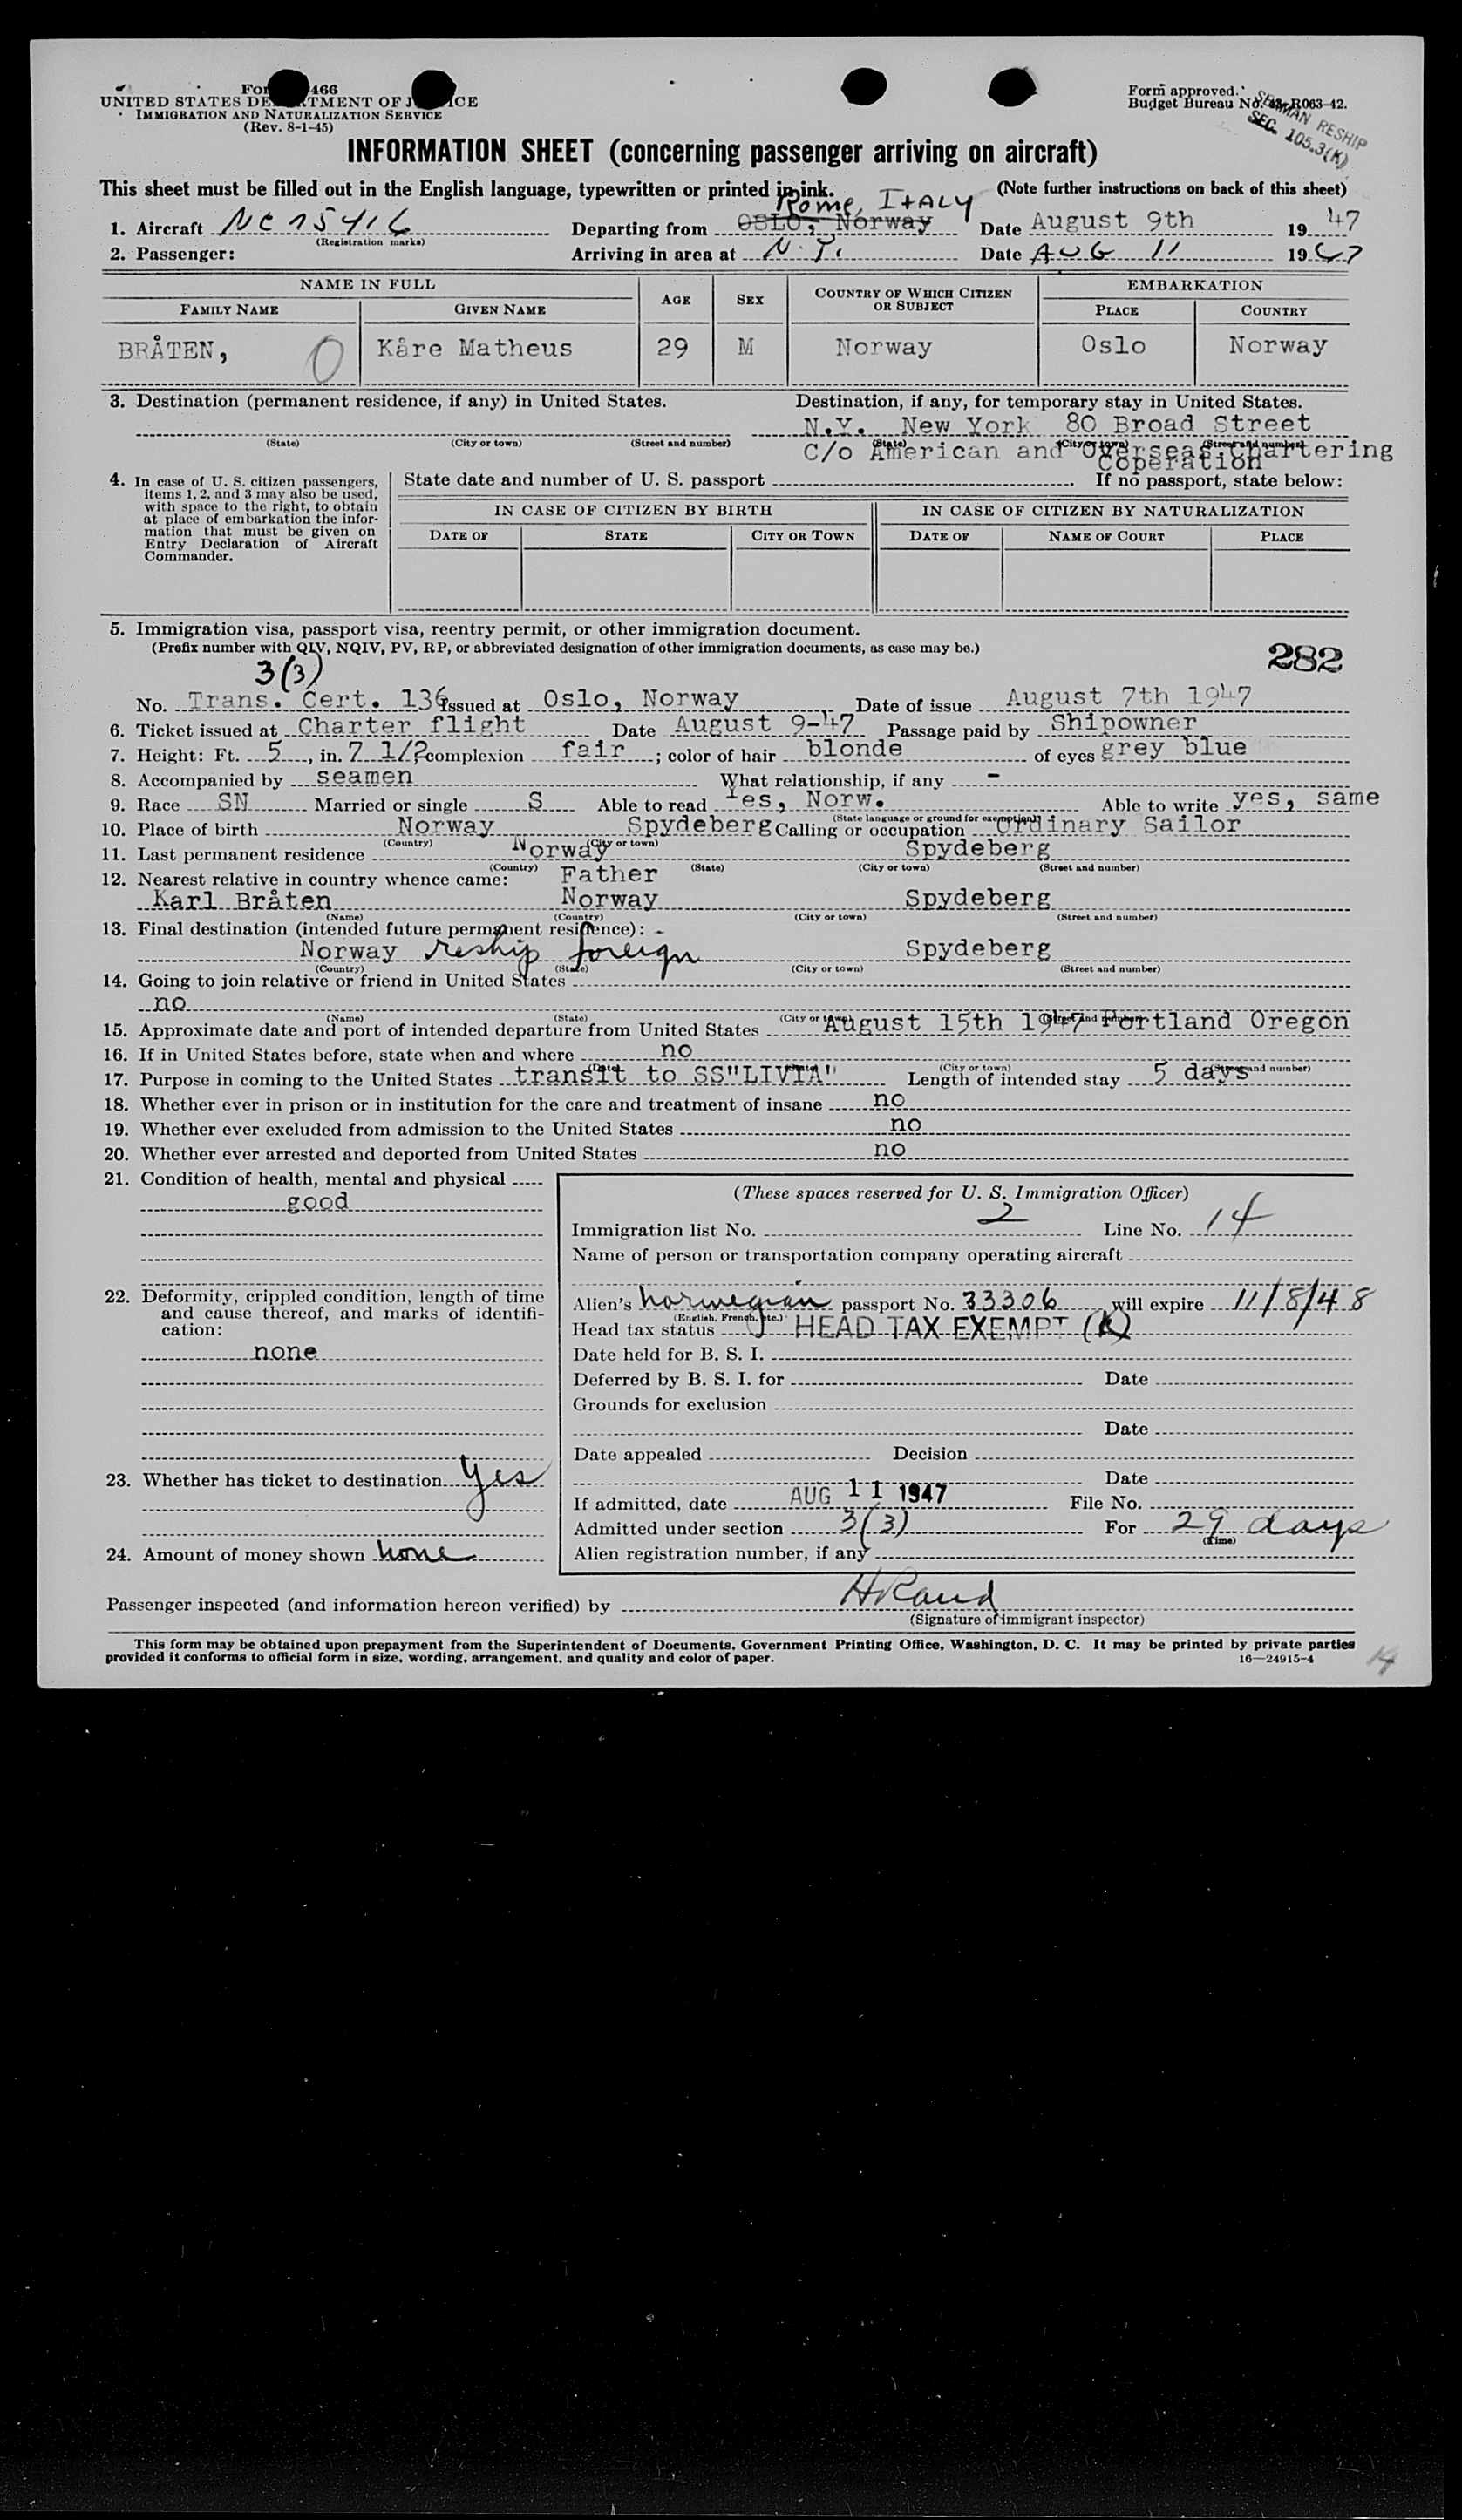 466
UNITED STATES DE TMENT OF J ICE
IMMIGRATION AND NATURALIZATION SERVICE
(Rev. 8-1-45)
Form approved.
Budget Bureau No. 43-R063-42.
SEAMAN RESHIP
SEC. 105.3(K)
INFORMATION SHEET (concerning passenger arriving on aircraft)
This sheet must be filled out in the English language, typewritten or printed in ink. (Note further instructions on back of this sheet)
Rome, ITALY
1. Aircraft NC 15416 Departing from OSLO, Norway Date August 9th 19 47
(Registration marks)
2. Passenger: Arriving in area at N.Y. Date AUG 11 1947
NAME IN FULL AGE SEX COUNTRY OF WHICH CITIZEN OR SUBJECT EMBARKATION
FAMILY NAME GIVEN NAME PLACE COUNTRY
BRÅTEN, 0 Kåre Matheus 29 M Norway Oslo Norway
3. Destination (permanent residence, if any) in United States. Destination, if any, for temporary stay in United States.
N.Y. New York 80 Broad Street
(State) (City or town) (Street and number) (State) (City or town) (Street and number)
C/o American and Overseas Chartering
Coperation
4. In case of U. S. citizen passengers, items 1, 2, and 3 may also be used, with space to the right, to obtain at place of embarkation the information that must be given on Entry Declaration of Aircraft Commander.
State date and number of U. S. passport If no passport, state below:
IN CASE OF CITIZEN BY BIRTH IN CASE OF CITIZEN BY NATURALIZATION
DATE OF STATE CITY OR TOWN DATE OF NAME OF COURT PLACE
5. Immigration visa, passport visa, reentry permit, or other immigration document.
(Prefix number with QIV, NQIV, PV, RP, or abbreviated designation of other immigration documents, as case may be.)
282
3(3)
No. Trans. Cert. 136 Issued at Oslo, Norway Date of issue August 7th 1947
6. Ticket issued at Charter flight Date August 9-47 Passage paid by Shipowner
7. Height: Ft. 5, in. 7 1/2; complexion fair; color of hair blonde of eyes grey blue
8. Accompanied by seamen What relationship, if any -
9. Race SN Married or single S Able to read Yes, Norw. Able to write yes, same
(State language or ground for exemption)
10. Place of birth Norway Spydeberg Calling or occupation Ordinary Sailor
(Country) (City or town)
11. Last permanent residence Norway Spydeberg
(Country) (State) (City or town) (Street and number)
12. Nearest relative in country whence came: Father
Karl Bråten Norway Spydeberg
(Name) (Country) (City or town) (Street and number)
13. Final destination (intended future permanent residence): -
Norway reship foreign Spydeberg
(Country) (State) (City or town) (Street and number)
14. Going to join relative or friend in United States
no
(Name) (State) (City or town) (Street and number)
15. Approximate date and port of intended departure from United States August 15th 1947 Portland Oregon
16. If in United States before, state when and where no
(Date) (State) (City or town) (Street and number)
17. Purpose in coming to the United States transit to SS"LIVIA" Length of intended stay 5 days
18. Whether ever in prison or in institution for the care and treatment of insane no
19. Whether ever excluded from admission to the United States no
20. Whether ever arrested and deported from United States no
21. Condition of health, mental and physical
good
22. Deformity, crippled condition, length of time and cause thereof, and marks of identification:
none
23. Whether has ticket to destination Yes
24. Amount of money shown none
(These spaces reserved for U. S. Immigration Officer)
Immigration list No. 2 Line No. 14
Name of person or transportation company operating aircraft
Alien's norwegian passport No. 33306 will expire 11/8/48
(English, French, etc.)
Head tax status HEAD TAX EXEMPT (K)
Date held for B. S. I.
Deferred by B. S. I. for Date
Grounds for exclusion
Date
Date appealed Decision
Date
If admitted, date AUG 11 1947 File No.
Admitted under section 3(3) For 29 days
(Time)
Alien registration number, if any
Passenger inspected (and information hereon verified) by HRand
(Signature of immigrant inspector)
This form may be obtained upon prepayment from the Superintendent of Documents, Government Printing Office, Washington, D. C. It may be printed by private parties
provided it conforms to official form in size, wording, arrangement, and quality and color of paper. 16—24915-4
14